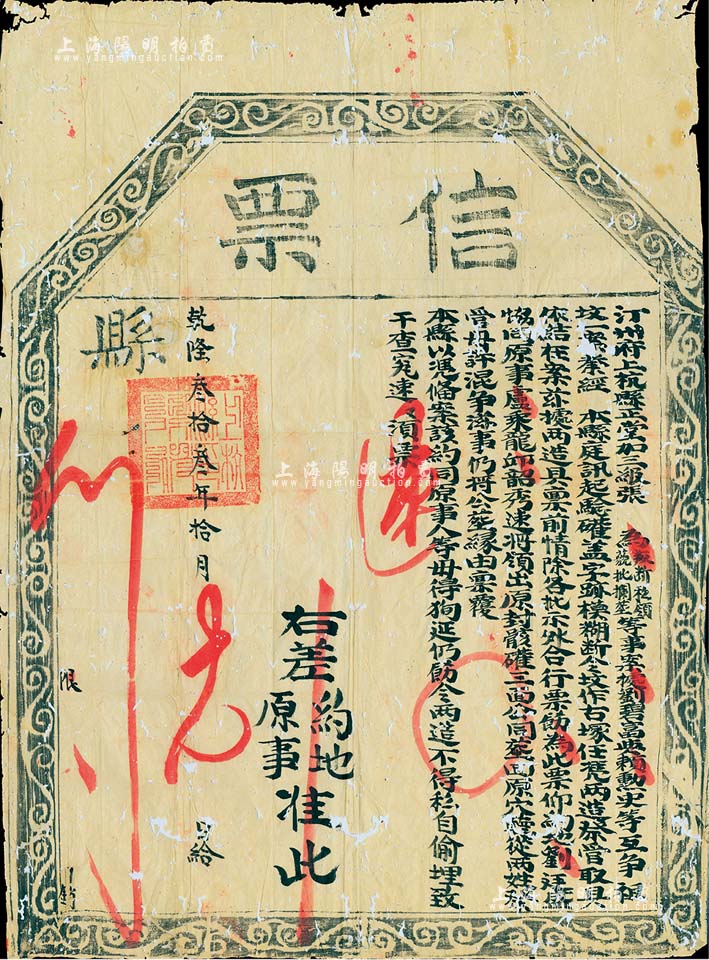 上海陽明拍賣
www.yangmingauction.com
信票
汀州府上杭縣正堂加三級張 為 等事案據劉碧富與賴勳史等互爭
坟一案奉經 本縣庭訊起驗確盖字跡模糊斷令坟作古塚任凴兩造祭管取
依結在案玆據兩造具禀前情除各批示外合行票飭為此票仰 劉
協同原事盧乘龍邱韶秀速將領出原封骸確三面公同葬回原穴 從兩姓
管毋許混爭滋事仍將公葬緣由禀覆
本縣以憑俻案該約同原事人等毋得狥延仍飭令兩造不得私自偷埋致
干查究速速須票
右差約地原事准此
乾隆叁拾叁年拾月 日給
縣
限 日銷
上海陽明拍賣
www.yangmingauction.com